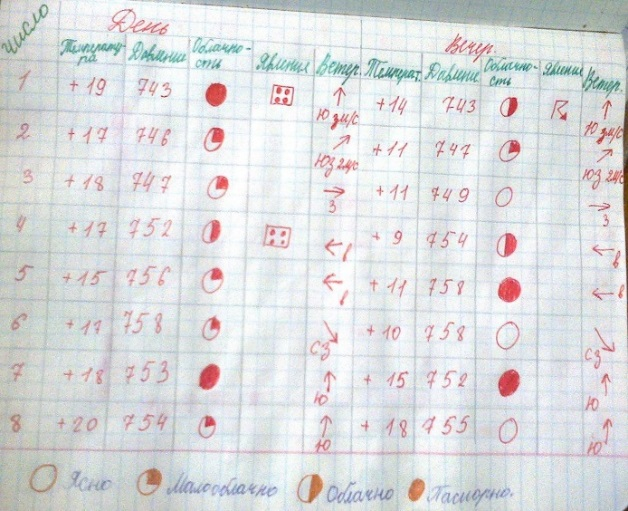 число День Вечер.
Температу-ра Давление Облачно-сть Явления Ветер Температ. Давление Облачно-сть Явления Ветер
1 +19 743 Ю 3м/с +14 743 Ю 3м/с
2 +17 746 ЮЗ 2м/с +11 747 ЮЗ 2м/с
3 +18 747 З +11 749 З
4 +17 752 В +9 754 В
5 +15 756 В +11 758 В
6 +17 758 СЗ +10 758 СЗ
7 +18 753 Ю +15 752 Ю
8 +20 754 Ю +18 755 Ю
Ясно Малооблачно Облачно Пасморно.